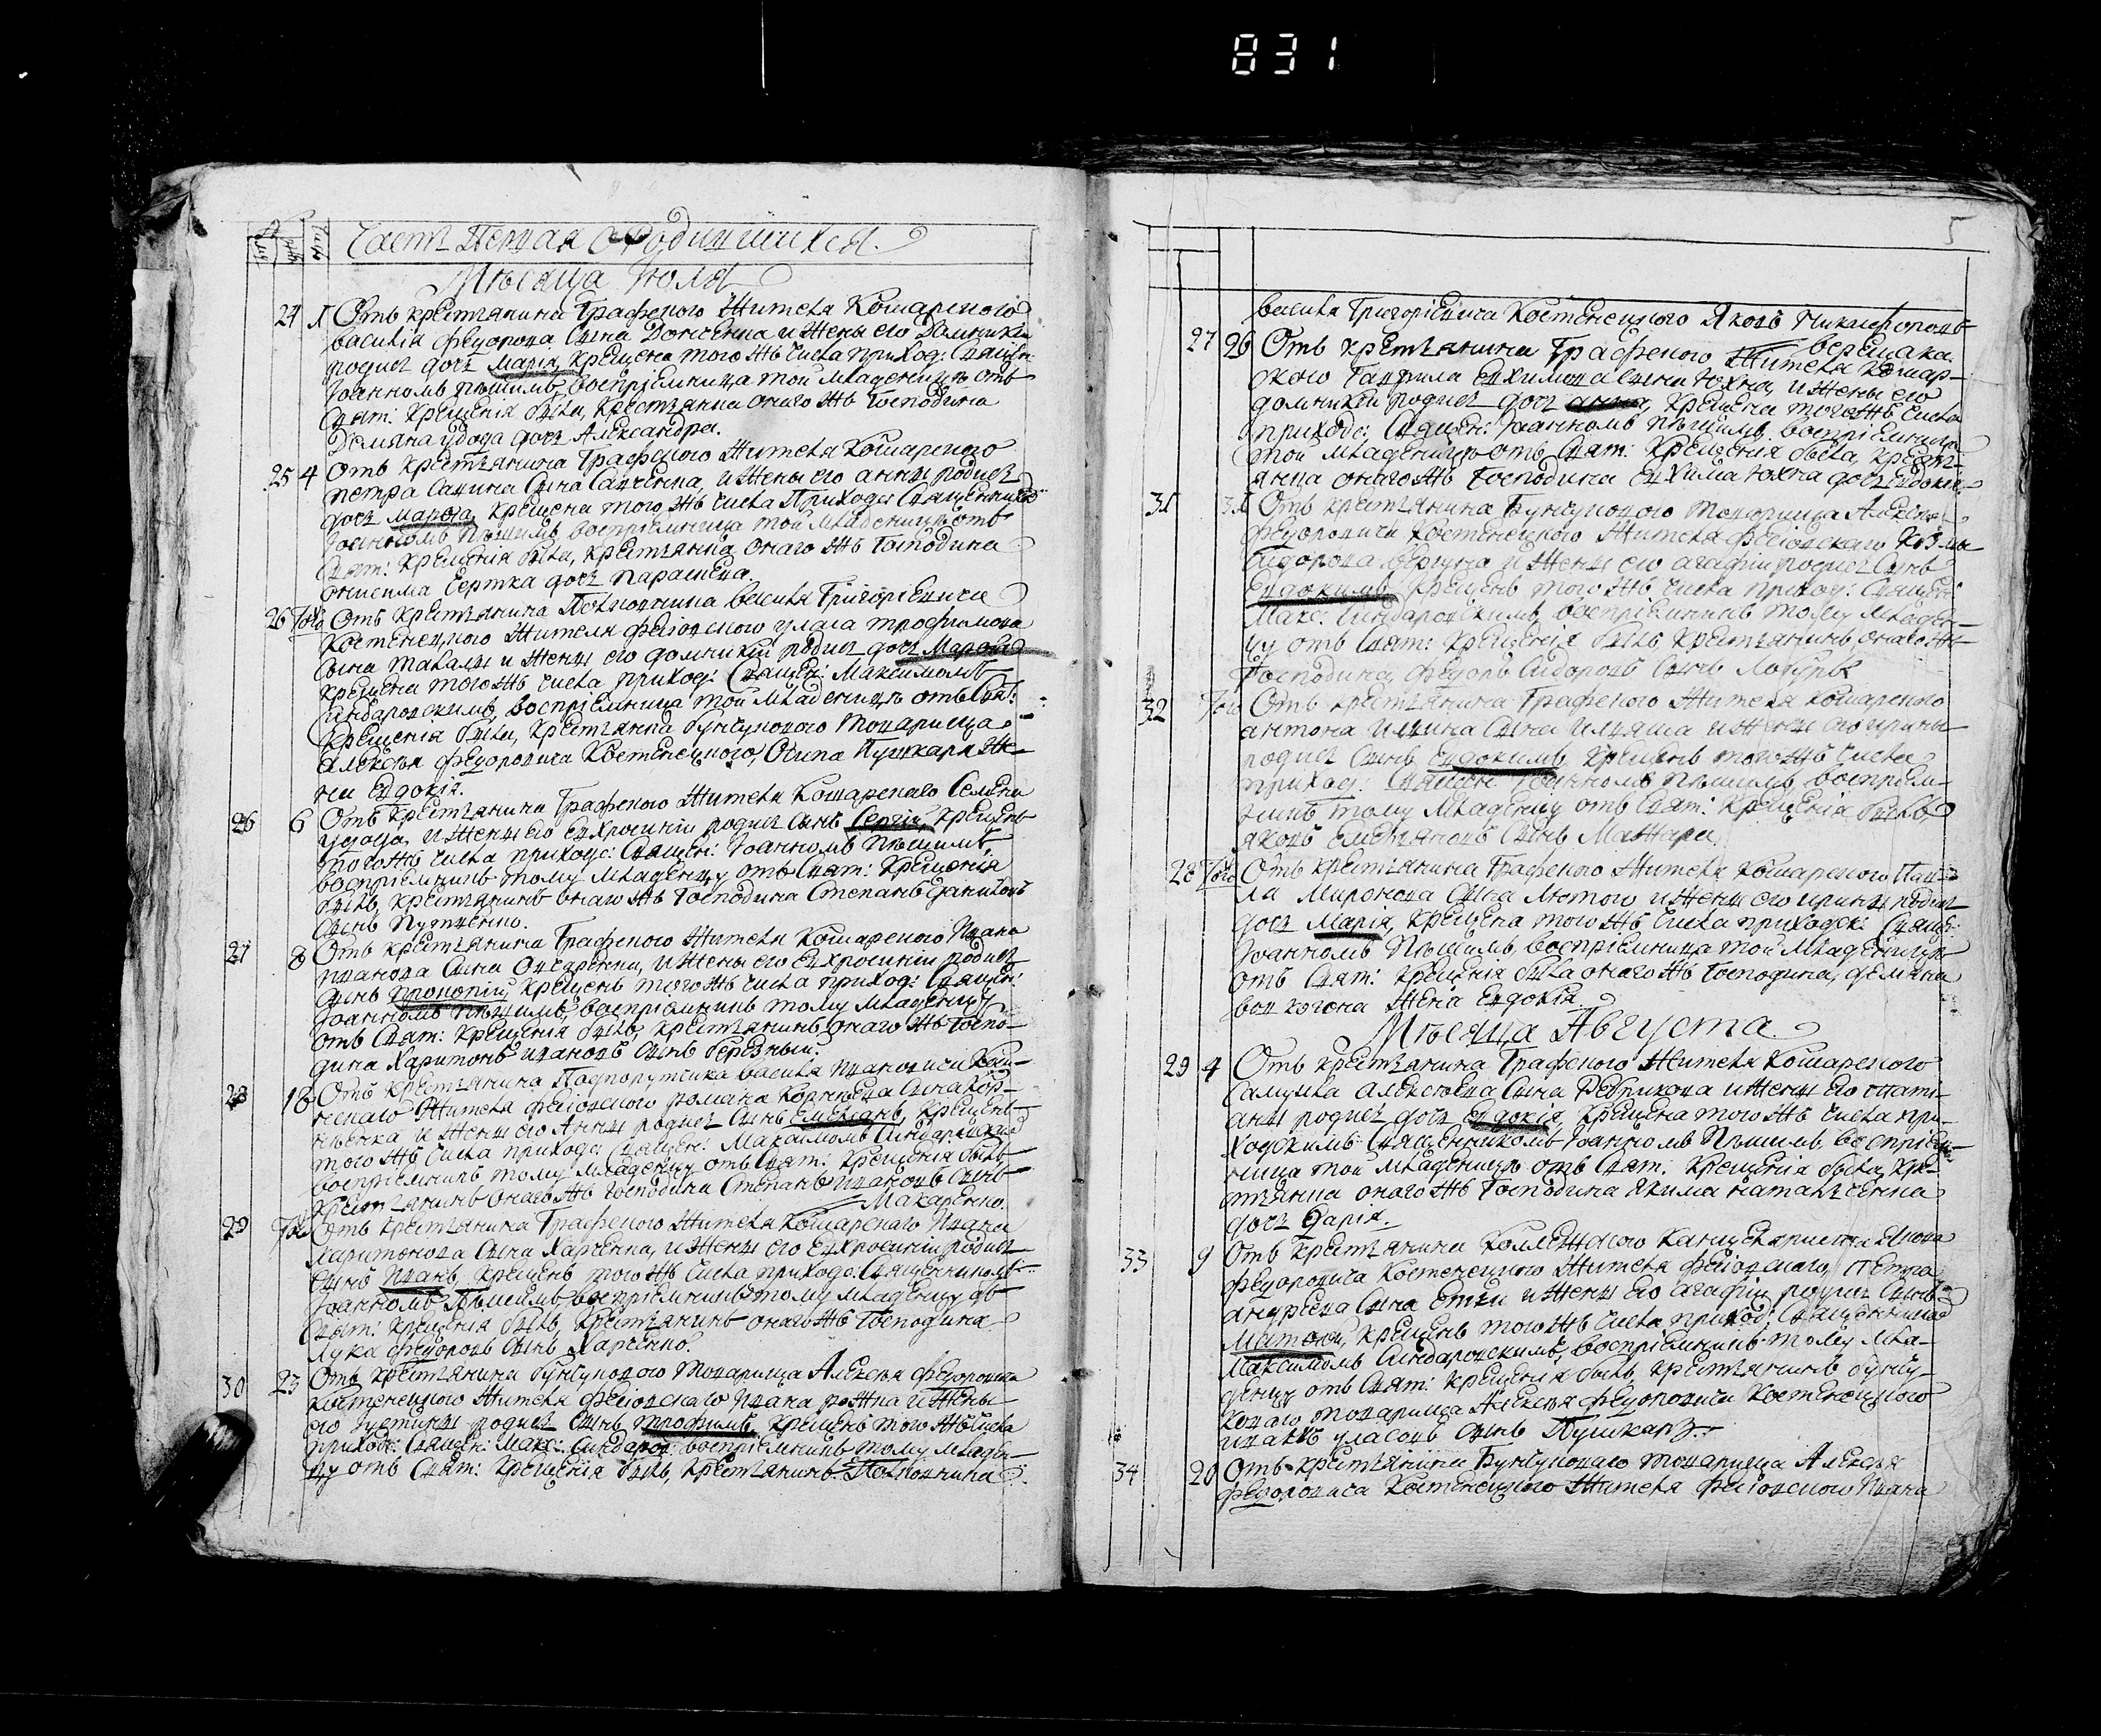 831
Часть Первая О Родившихся.
Мѣсяца Июля
24 1 Отъ крестянина Графского Жителя Кошарского
василія федорова сына Донченка и жены его Домникіи
родися дочь Марія, крещена того жъ числа приход: священ:
Іоанномъ Пѣшимъ, воспріемница той младеницѣ отъ
свят: крещенія была, крестянка онаго жъ Господина
Демяна удода дочь Александра.
25 4 Отъ крестянина Графского Жителя Кошарского
петра савина сына Савченка, и жены его анны родися
дочь марфа, крещена того жъ числа Приходс: священником
Іоанномъ Пѣшимъ, воспріемница той младеницѣ отъ
свят: крещенія была, крестянка онаго жъ Господина
онисима Чертка дочь Парасцева.
26 Того Отъ крестянина Полковника василя Григорієвича
Костенецкого Жителя фесювского уласа трофимова
сына такалы и жены его домникіи родися дочь Марфа
крещена того жъ числа приход: священ: Максимомъ
Синдаровскимъ, воспріемница той младеницѣ отъ свят:
крещенія была, крестянка бунчукового товарища
алексея федоровича Костенецкого, Осипа Пушкаря же-
на Евдокія.
26 6 Отъ крестянина Графского Жителя Кошарскаго Семена
удода, и жены его Евхросиніи родися сынъ Сергій, крещенъ
того жъ числа приходс: священ: Іоанномъ Пѣшимъ,
воспріемникъ тому младенцу отъ свят: крещенія
былъ, крестянинъ онаго жъ Господина Степанъ Даниловъ
сынъ Путченко.
27 8 Отъ крестянина Графского Жителя Кошарского Ивана
иванова сына Овчаренка, и жены его Евхросиніи родися
сынъ прокопій, крещенъ того жъ числа приход: священ:
Іоанномъ Пѣшимъ, воспріемникъ тому младенцу
отъ свят: крещенія былъ, крестянинъ онаго жъ Госпо-
дина Харитонъ ивановъ сынъ березный.
28 18 Отъ крестянина Подпорутчика василя Ивановича Кан-
Жителя фесювского романа Корнѣева сына Кор-
нѣенка и жены его Анны родися сынъ Емелянъ, крещенъ
того жъ числа приходс: священ: Максимомъ Синдаровским
воспріемникъ тому младенцу отъ свят: крещенія былъ
крестянинъ онаго жъ господина Степанъ Ивановъ сынъ
Макаренко.
29 Того Отъ крестянина Графского Жителя Кошарскаго Ивана
харитонова сына Харченка, и жены его Евхросиніи родися
сынъ Иванъ, крещенъ того жъ числа приходс: священникомъ
Іоанномъ Пѣшимъ, воспріемникъ тому младенцу отъ
свят: крещенія былъ, крестянинъ онаго жъ Господина
Лука федоровъ сынъ Харченко.
30 23 Отъ крестянина бунчукового товарища Алексея федоровича
Костенецкого Жителя фесювскаго Ивана рожна и жены
его Іустины родися сынъ трофимъ, крещенъ того жъ числа
приходс: священ: Макс: Синдаров: воспріемникъ тому младен-
цу отъ свят: крещенія былъ, крестянинъ Полковника
5
василя Григорієвича Костенецкого Яковъ Никифоровъ
верещака.
27 26 Отъ крестянина Графского Жителя Кошар-
ского Гаврила евхимова сына Юхна, и жены его
домникіи родися дочь анна, крещена того жъ числа
приходс: священ: Іоанномъ Пѣшимъ. воспріемница
той младеницѣ отъ свят: крещенія была, крест-
янка онаго жъ Господина Евхима Юхна дочь Евдокія
31 31 Отъ крестянина Бунчукового товарища Алексея
федоровича Костенецкого Жителя фесювскаго Козмы
Сидорова и жены его агафіи родися сынъ
Евдокимъ, крещенъ того жъ числа приход: священ:
Макс: Синдаровскимъ, воспріемникъ тому младен-
цу отъ свят: крещенія былъ, крестянинъ онаго жъ
Господина, федоръ Сидоровъ сынъ
32 Того Отъ крестянина Графского Жителя Кошарского
антона Илина сына Иляша и жены его ирины
родися сынъ Евдокимъ, крещенъ того жъ числа
приход: священ: Іоанномъ Пѣшимъ, воспріем-
никъ тому младенцу отъ свят: крещенія былъ
яковъ Емеляновъ сынъ Мажара.
28 Того Отъ крестянина Графского Жителя Кошарского Пав-
ла Миронова сына Лютого и жены его ирины родися
дочь Марія, крещена того жъ числа приходск: священ:
Іоанномъ Пѣшимъ, воспріемница той младеницѣ
отъ свят: крещенія была онаго жъ Господина, демяна
вовкогона жена Евдокія.
Мѣсяца Августа
29 4 Отъ крестянина Графского Жителя Кошарского
Самуила алексѣева сына Ребрикова и жены его тати-
аны родися дочь евдокія, крещена того жъ числа при-
ходскимъ священникомъ Іоанномъ Пѣшимъ, воспріем-
ница той младеницѣ отъ свят: крещенія была, кре-
стянка онаго жъ Господина Якима
дочь Дарія.
33 9 Отъ крестянина Коллежского Канцеляриста Якова
федоровича Костенецкого Жителя фесювского, Петра
андреева сына и жены его агафіи родися сынъ
крещенъ того жъ числа приход: священником
Максимомъ Синдаровскимъ, воспріемникъ тому мла-
денцу отъ свят: крещенія былъ, крестянинъ бунчу-
коваго товарища Алексея федоровича Костенецкого
иванъ уласовъ сынъ Пушкарь
34 20 Отъ крестянина Бунчуковаго товарища Алексея
федоровича Костенецкого Жителя фесювского Ивана